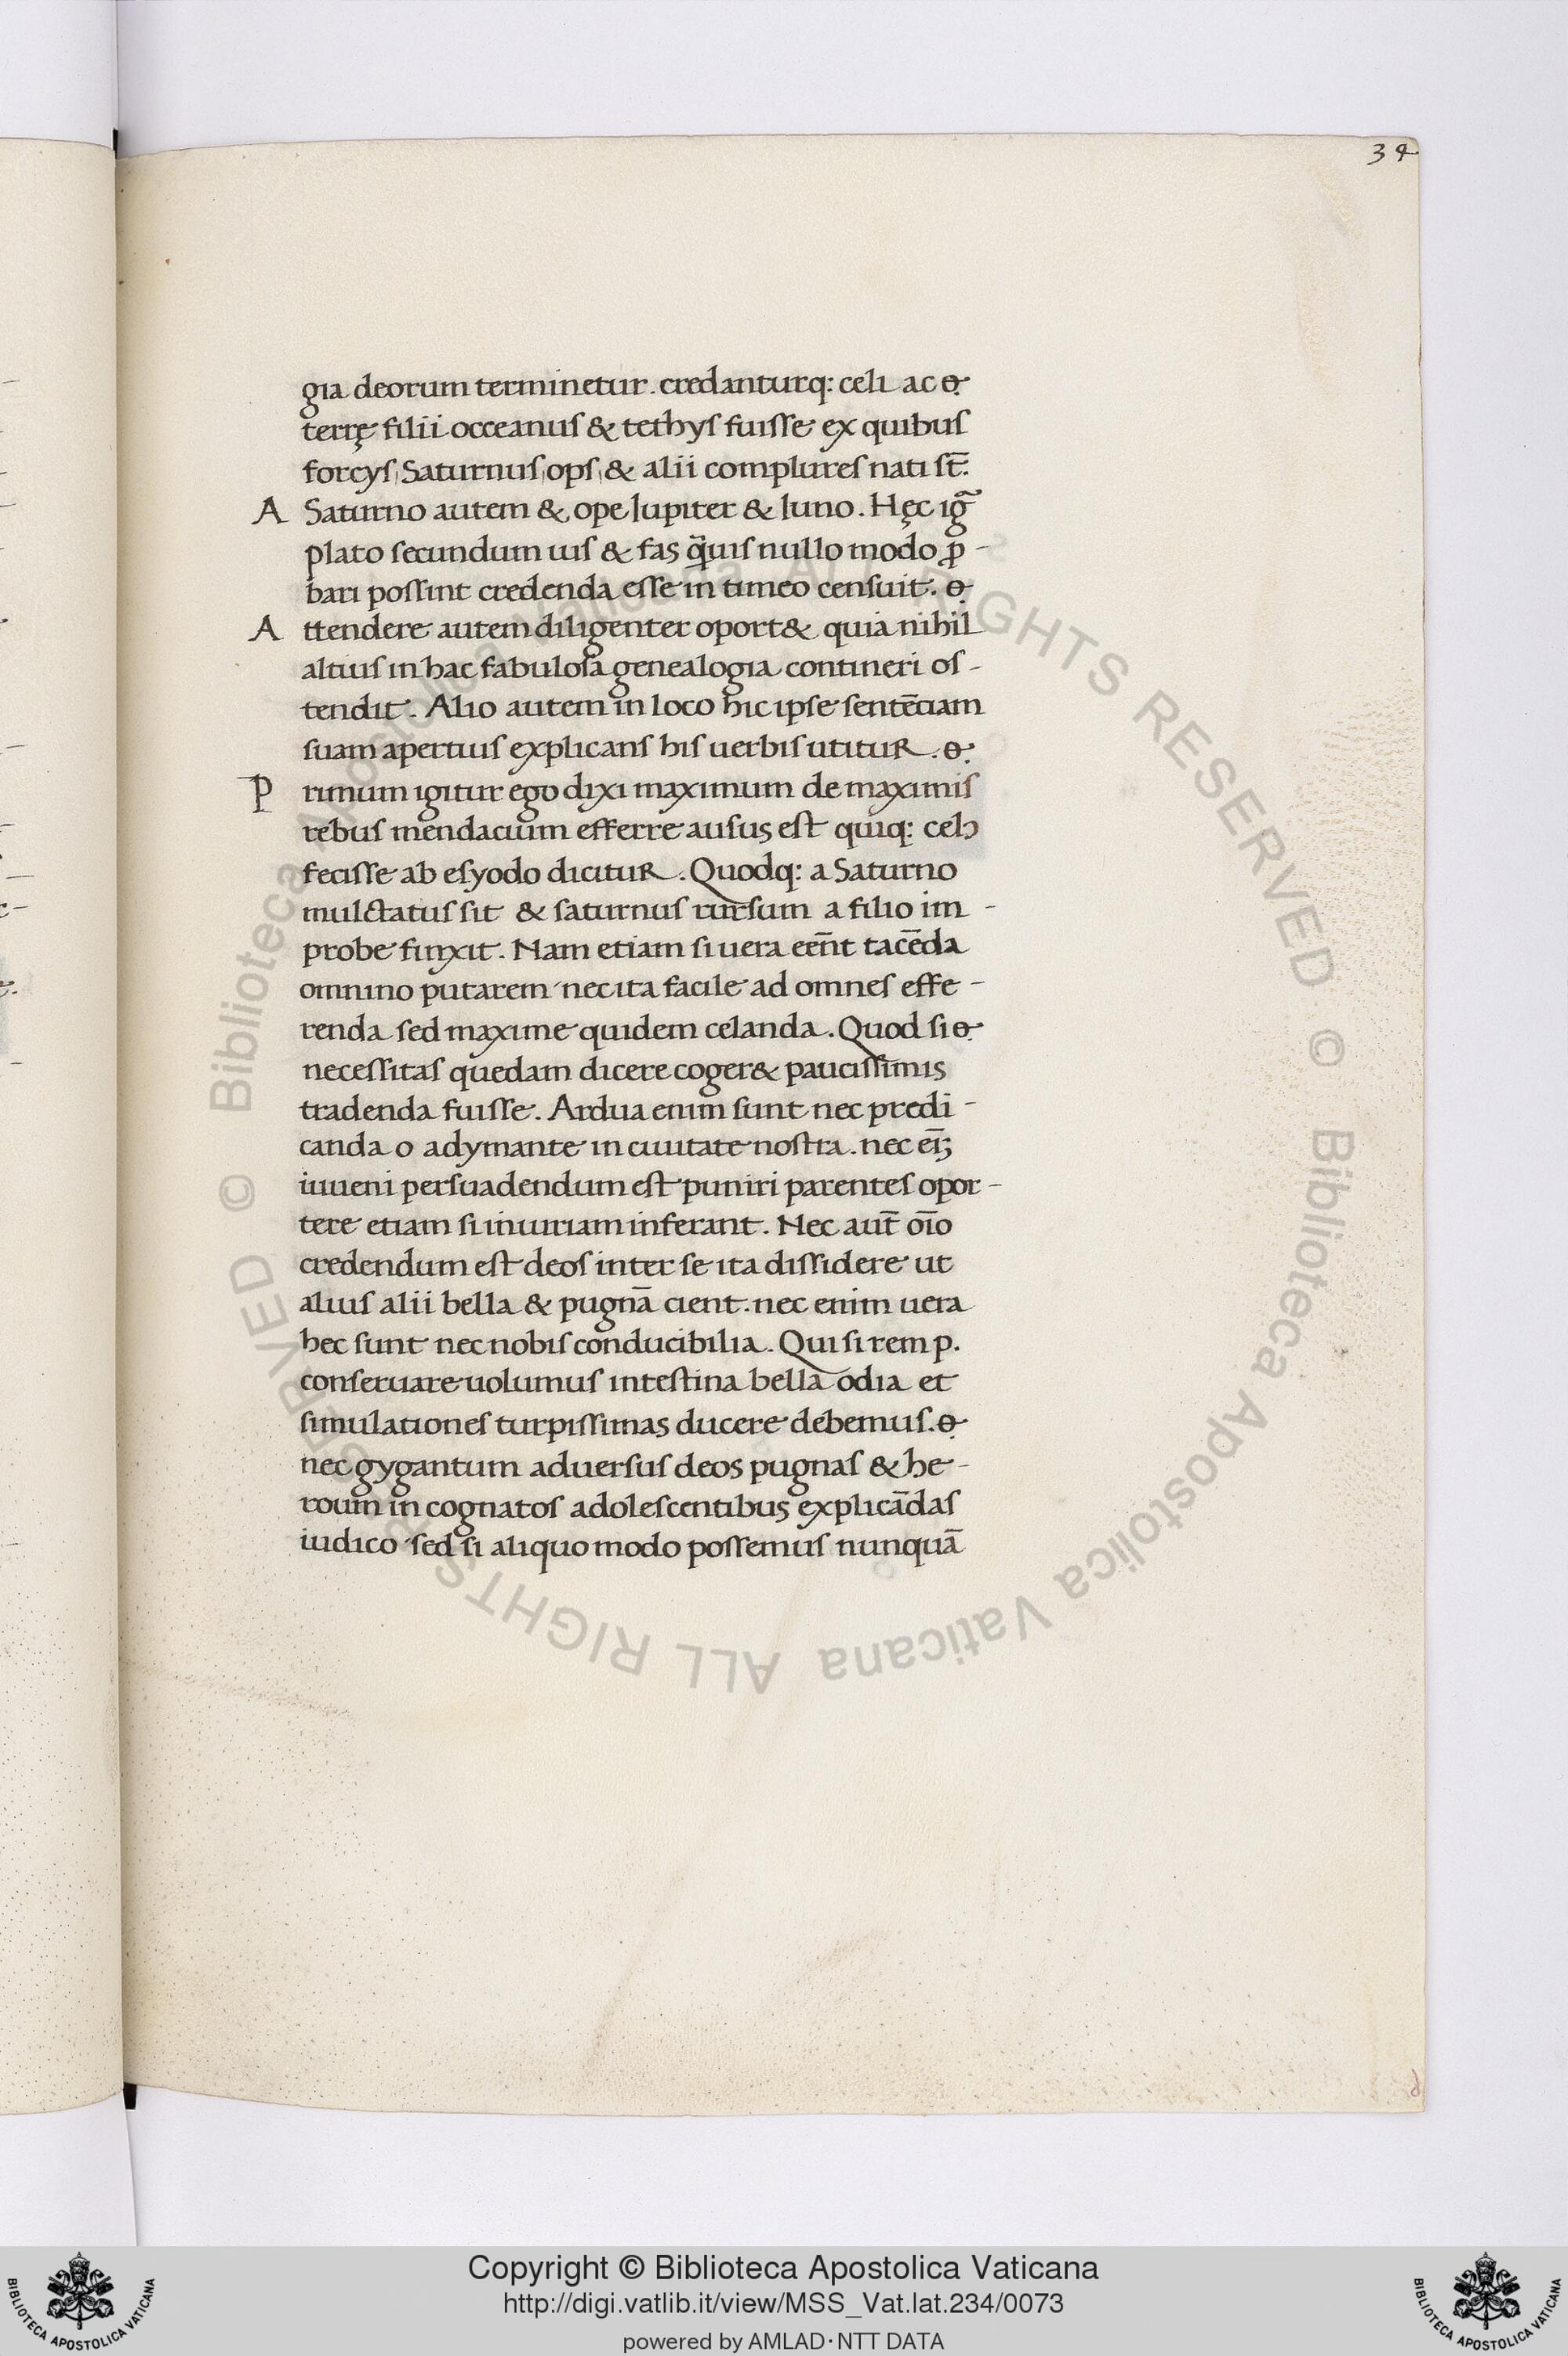 34
gia deorum terminetur. credanturq: celi ac
terrę filii occeanus & tethys fuisse ex quibus
forcys, Saturnus, ops, & alii complures nati st̄.
A Saturno autem & ope Iupiter & Iuno. Hęc ig̃
plato secundum ius & fas q̃uis nullo modo ꝓ-
bari possint credenda esse in timeo censuit.
Attendere autem diligenter oport& quia nihil
altius in hac fabulosa genealogia contineri os-
tendit. Alio autem in loco hic ipse sentēciam
suam apertius explicans his uerbis utitur.
Primum igitur ego dixi maximum de maximis
rebus mendacium efferre ausus est
fecisse ab esyodo dicitur. Quodq: a Saturno
mulctatus sit & saturnus rursum a filio im-
probe finxit. Nam etiam si uera eēnt tacēda
omnino putarem nec ita facile ad omnes effe-
renda sed maxime quidem celanda. Quod si
necessitas quedam dicere coger& paucissimis
tradenda fuisse. Ardua enim sunt nec predi-
canda o adymante in ciuitate nostra. nec
iuueni persuadendum est puniri parentes opor-
tere etiam si iniuriam inferant. Nec aut̄ oīo
credendum est deos inter se ita dissidere ut
alius alii bella & pugnā cient. nec enim uera
hec sunt nec nobis conducibilia. Qui si rem p.
conseruare uolumus intestina bella odia et
simulationes turpissimas ducere debemus.
nec gygantum aduersus deos pugnas & he-
roum in cognatos adolescentibus explicādas
iudico sed si aliquo modo possemus nunquā
© Biblioteca Apostolica Vaticana ALL RIGHTS RESERVED © Biblioteca Apostolica Vaticana ALL RIGHTS RESERVED
Copyright © Biblioteca Apostolica Vaticana
http://digi.vatlib.it/view/MSS_Vat.lat.234/0073
powered by AMLAD·NTT DATA
BIBLIOTECA APOSTOLICA VATICANA
BIBLIOTECA APOSTOLICA VATICANA